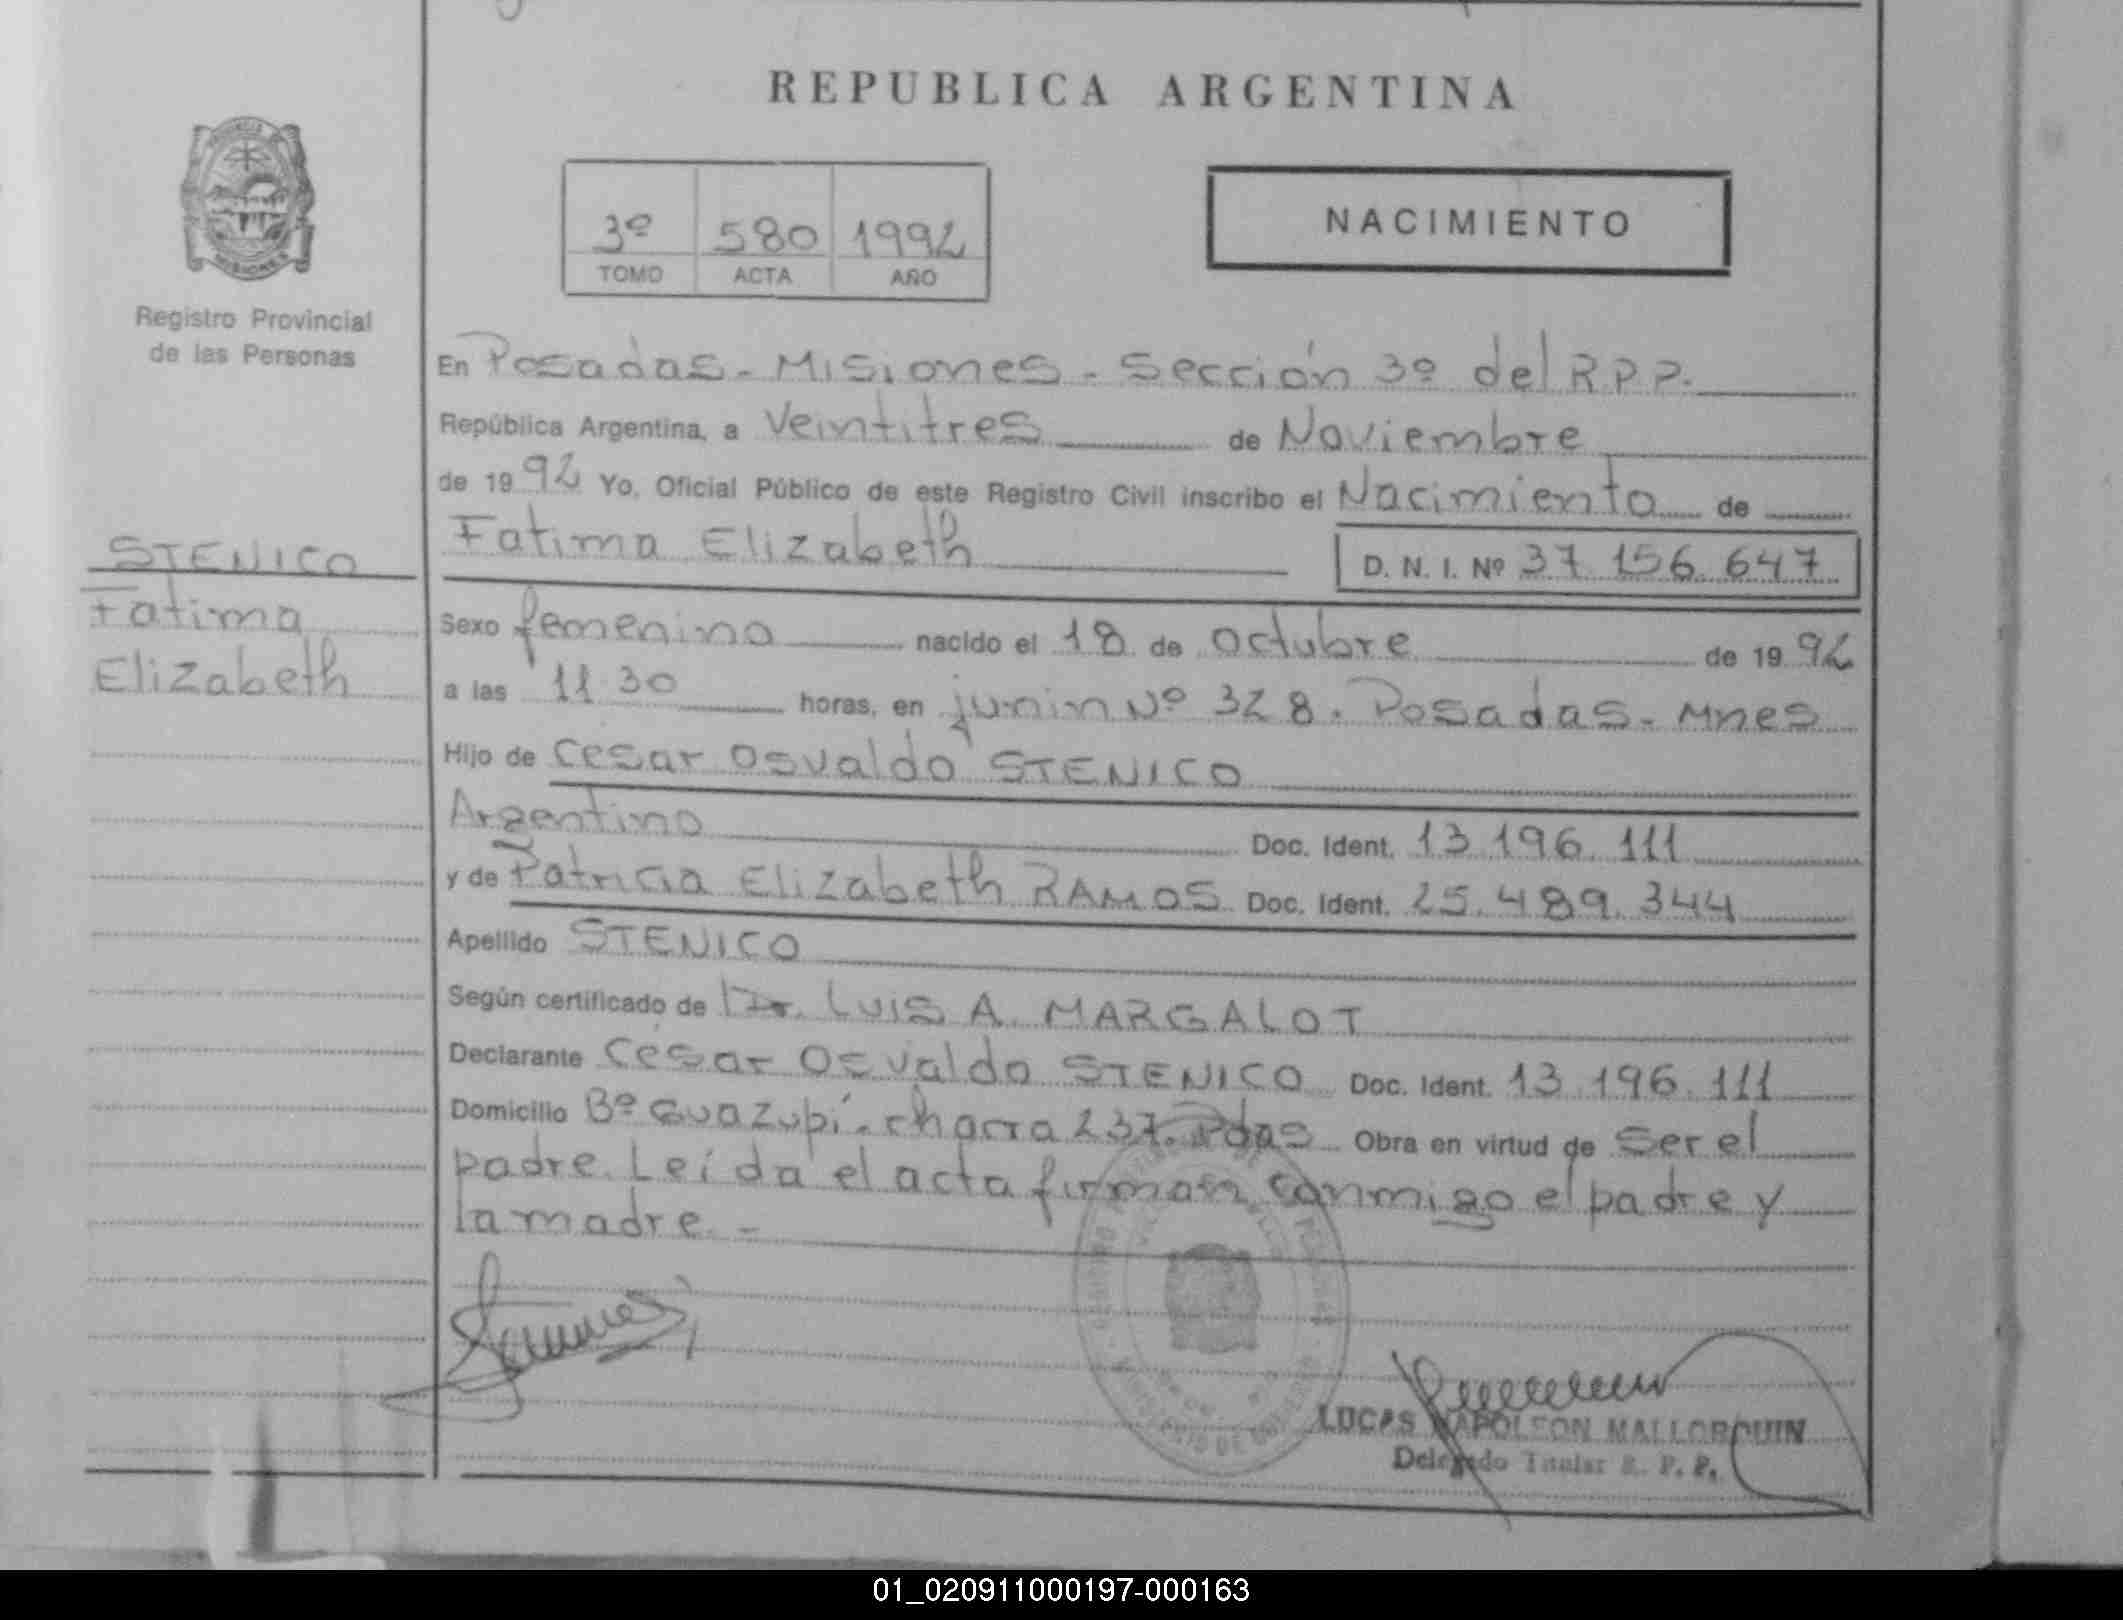 REPUBLICA ARGENTINA
PROVINCIA
MISIONES
Registro Provincial
de las Personas
3º 580 1992
TOMO ACTA AÑO
NACIMIENTO
En Posadas - Misiones - Sección 3º del R.P.P.
República Argentina, a Veintitres de Noviembre
de 1992 Yo, Oficial Público de este Registro Civil inscribo el Nacimiento de
Fatima Elizabeth D. N. I. Nº 37.156.647
STENICO
Fatima
Elizabeth
Sexo femenino nacido el 18 de octubre de 1992
a las 11.30 horas, en junin Nº 328. Posadas - Mnes
Hijo de Cesar Osvaldo STENICO
Argentino Doc. Ident. 13.196.111
y de Patricia Elizabeth RAMOS Doc. Ident. 25.489.344
Apellido STENICO
Según certificado de Dr. LUIS A. MARGALOT
Declarante César Osvaldo STENICO Doc. Ident. 13.196.111
Domicilio Bº Guazupí - chacra 237. Pdas Obra en virtud de ser el
padre. Leída el acta firman conmigo el padre y
la madre. -
LUCAS NAPOLEON MALLORQUIN
Delegado Titular R. P. P.
01_020911000197-000163